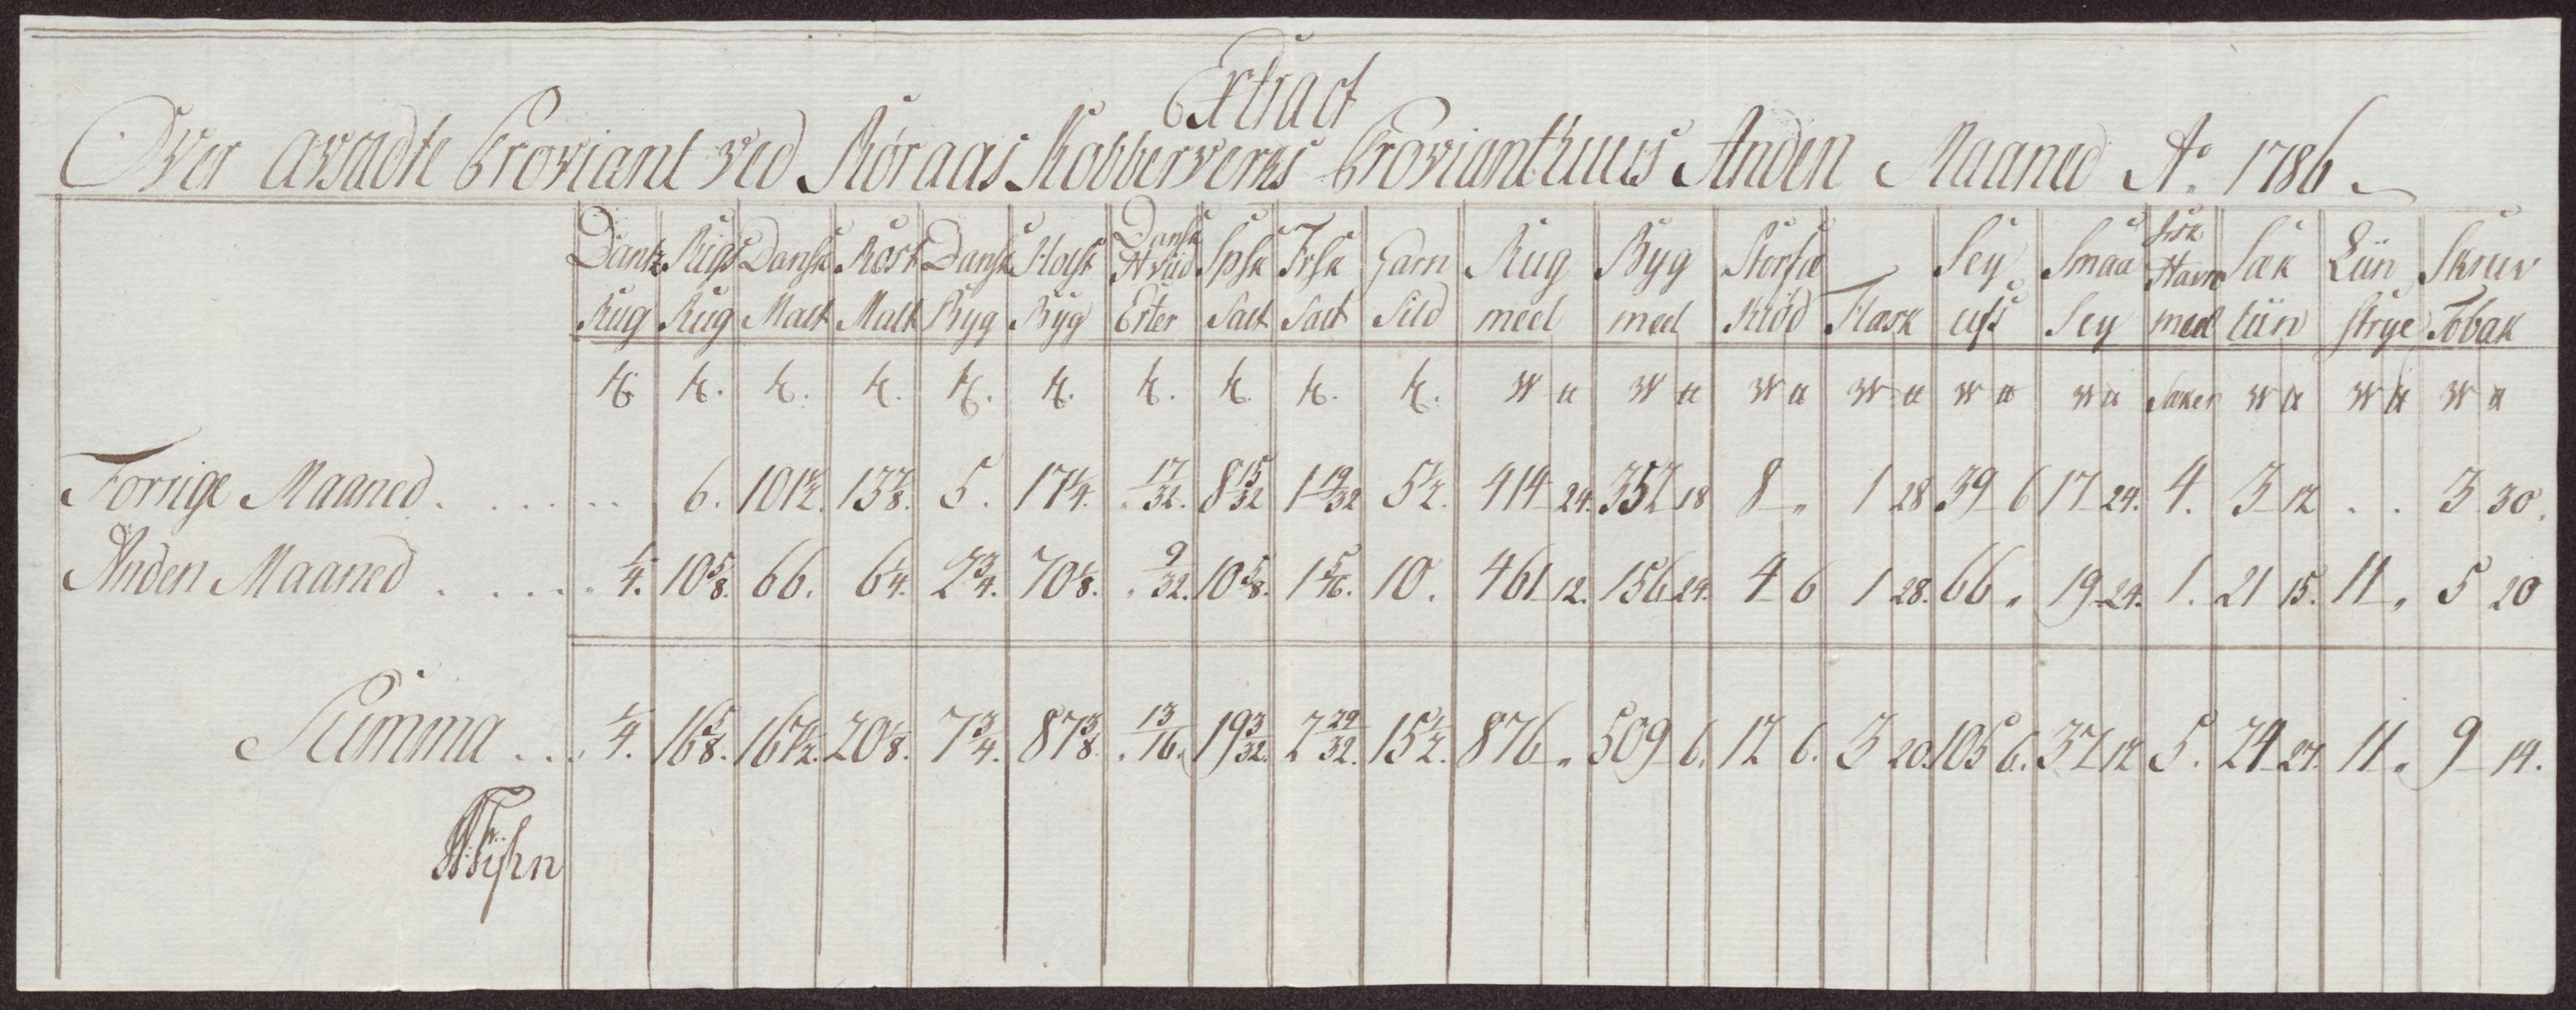 Extract
Over avsadte Proviant ved Röraas Kobberverks Provianthuus Anden Maaned Ao. 1786
Dantz Rug | Rigs Rug | Dansk Malt | Rost Malt | Dansk Byg | Holst Byg | Dansk Hviid Erter | Spsk Salt | Frsk Salt | Garn Sild | Rug meel | Byg meel | Storfæ Kiöd | Flæsk | Sey ufs | Smaa Sey | Irsk Havre meel | Sæk liin | Liin strye | Skruv Tobak
t. | t. | t. | t. | t. | t. | t. | t. | t. | t. | W ℔ | W ℔ | W ℔ | W ℔ | W ℔ | W ℔ | Sæker | W ℔ | W ℔ | W ℔
Forrige Maaned . . . . . . | 6. | 101½. | 13⅞. | 5. | 17¼. | „ 17/32. | 8 15/32 | 1 19/32 | 5½. | 414 24. | 352 18 | 8 „ | 1 28 | 39 6 | 17 24. | 4. | 3 12 | . . | 3 30.
Anden Maaned . . . . „ ¼. | 10⅝. | 66. | 6¼. | 2¾. | 70⅛. | „ 9/32. | 10⅝. | 1 5/16. | 10. | 461 12. | 156 24. | 4 6 | 1 28. | 66 „ | 19 24. | 1. | 21 15. | 11 „ | 5 20
Summa . . . ¼. | 16⅝. | 167½. | 20⅛. | 7¾. | 87⅜. | „ 13/16. | 19 3/32. | 2 29/32. | 15½. | 876 „ | 509 6. | 12 6. | 3 20. | 105 6. | 37 12 | 5. | 24 27. | 11 „ | 9 14.